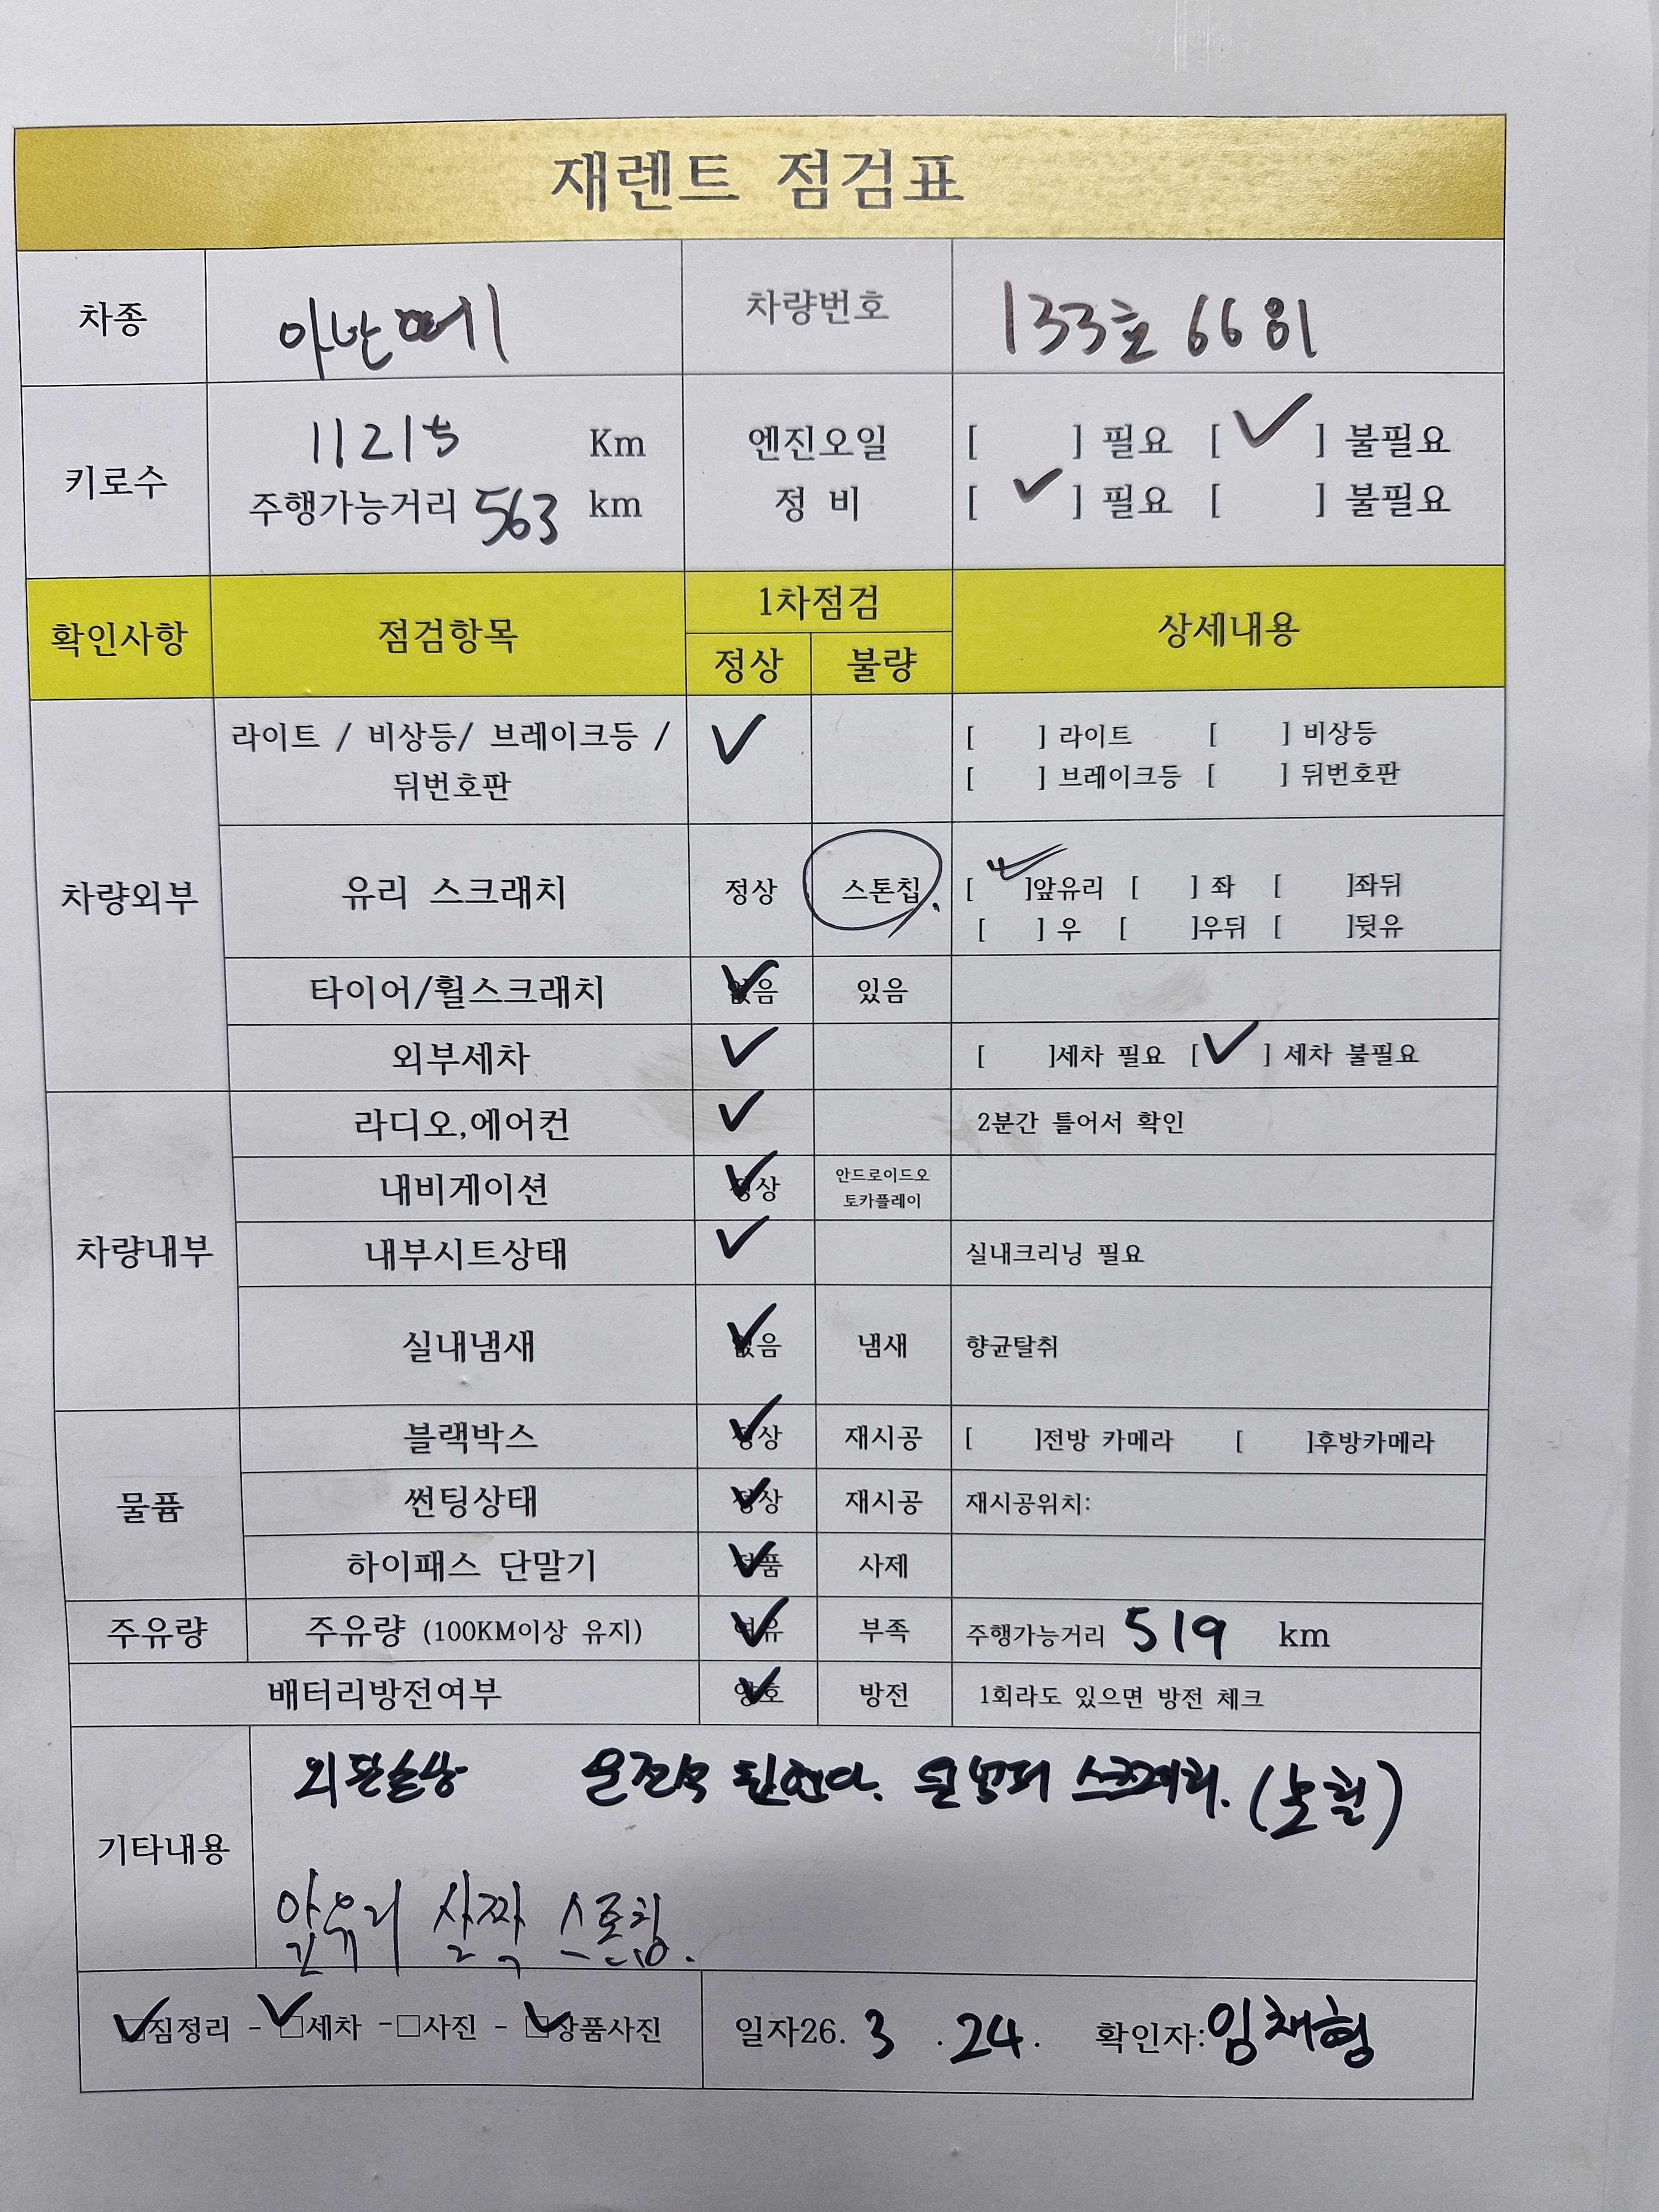 재렌트 점검표
차종 아반떼 차량번호 133호 6681
키로수 11215 Km 엔진오일 [ ] 필요 [ ✓ ] 불필요
주행가능거리 563 km 정 비 [ ✓ ] 필요 [ ] 불필요
확인사항 점검항목 1차점검 상세내용
정상 불량
차량외부
라이트 / 비상등/ 브레이크등 / ✓ [ ] 라이트 [ ] 비상등
뒤번호판 [ ] 브레이크등 [ ] 뒤번호판
유리 스크래치 정상 스톤칩 [ ✓ ]앞유리 [ ] 좌 [ ]좌뒤
[ ] 우 [ ]우뒤 [ ]뒷유
타이어/휠스크래치 ✓ 없음 있음
외부세차 ✓ [ ]세차 필요 [ ✓ ] 세차 불필요
차량내부
라디오,에어컨 ✓ 2분간 틀어서 확인
내비게이션 ✓ 정상 안드로이드오
토카플레이
내부시트상태 ✓ 실내크리닝 필요
실내냄새 ✓ 없음 냄새 향균탈취
물품
블랙박스 ✓ 정상 재시공 [ ]전방 카메라 [ ]후방카메라
썬팅상태 ✓ 정상 재시공 재시공위치:
하이패스 단말기 ✓ 정품 사제
주유량 주유량 (100KM이상 유지) ✓ 여유 부족 주행가능거리 519 km
배터리방전여부 ✓ 양호 방전 1회라도 있으면 방전 체크
기타내용
외관손상 운전석 뒤 범퍼 스크래치.
앞유리 살짝 스톤칩.
✓ □짐정리 - ✓ □세차 - □사진 - ✓ □상품사진 일자26. 3 . 24. 확인자: 임채형